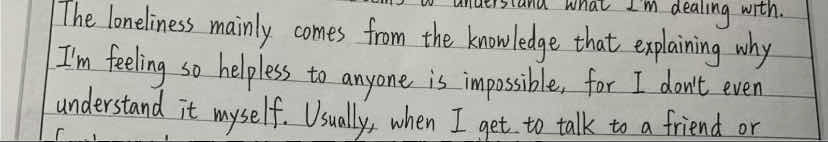 understand what I'm dealing with.
The loneliness mainly comes from the knowledge that explaining why
I'm feeling so helpless to anyone is impossible, for I don't even
understand it myself. Usually, when I get to talk to a friend or